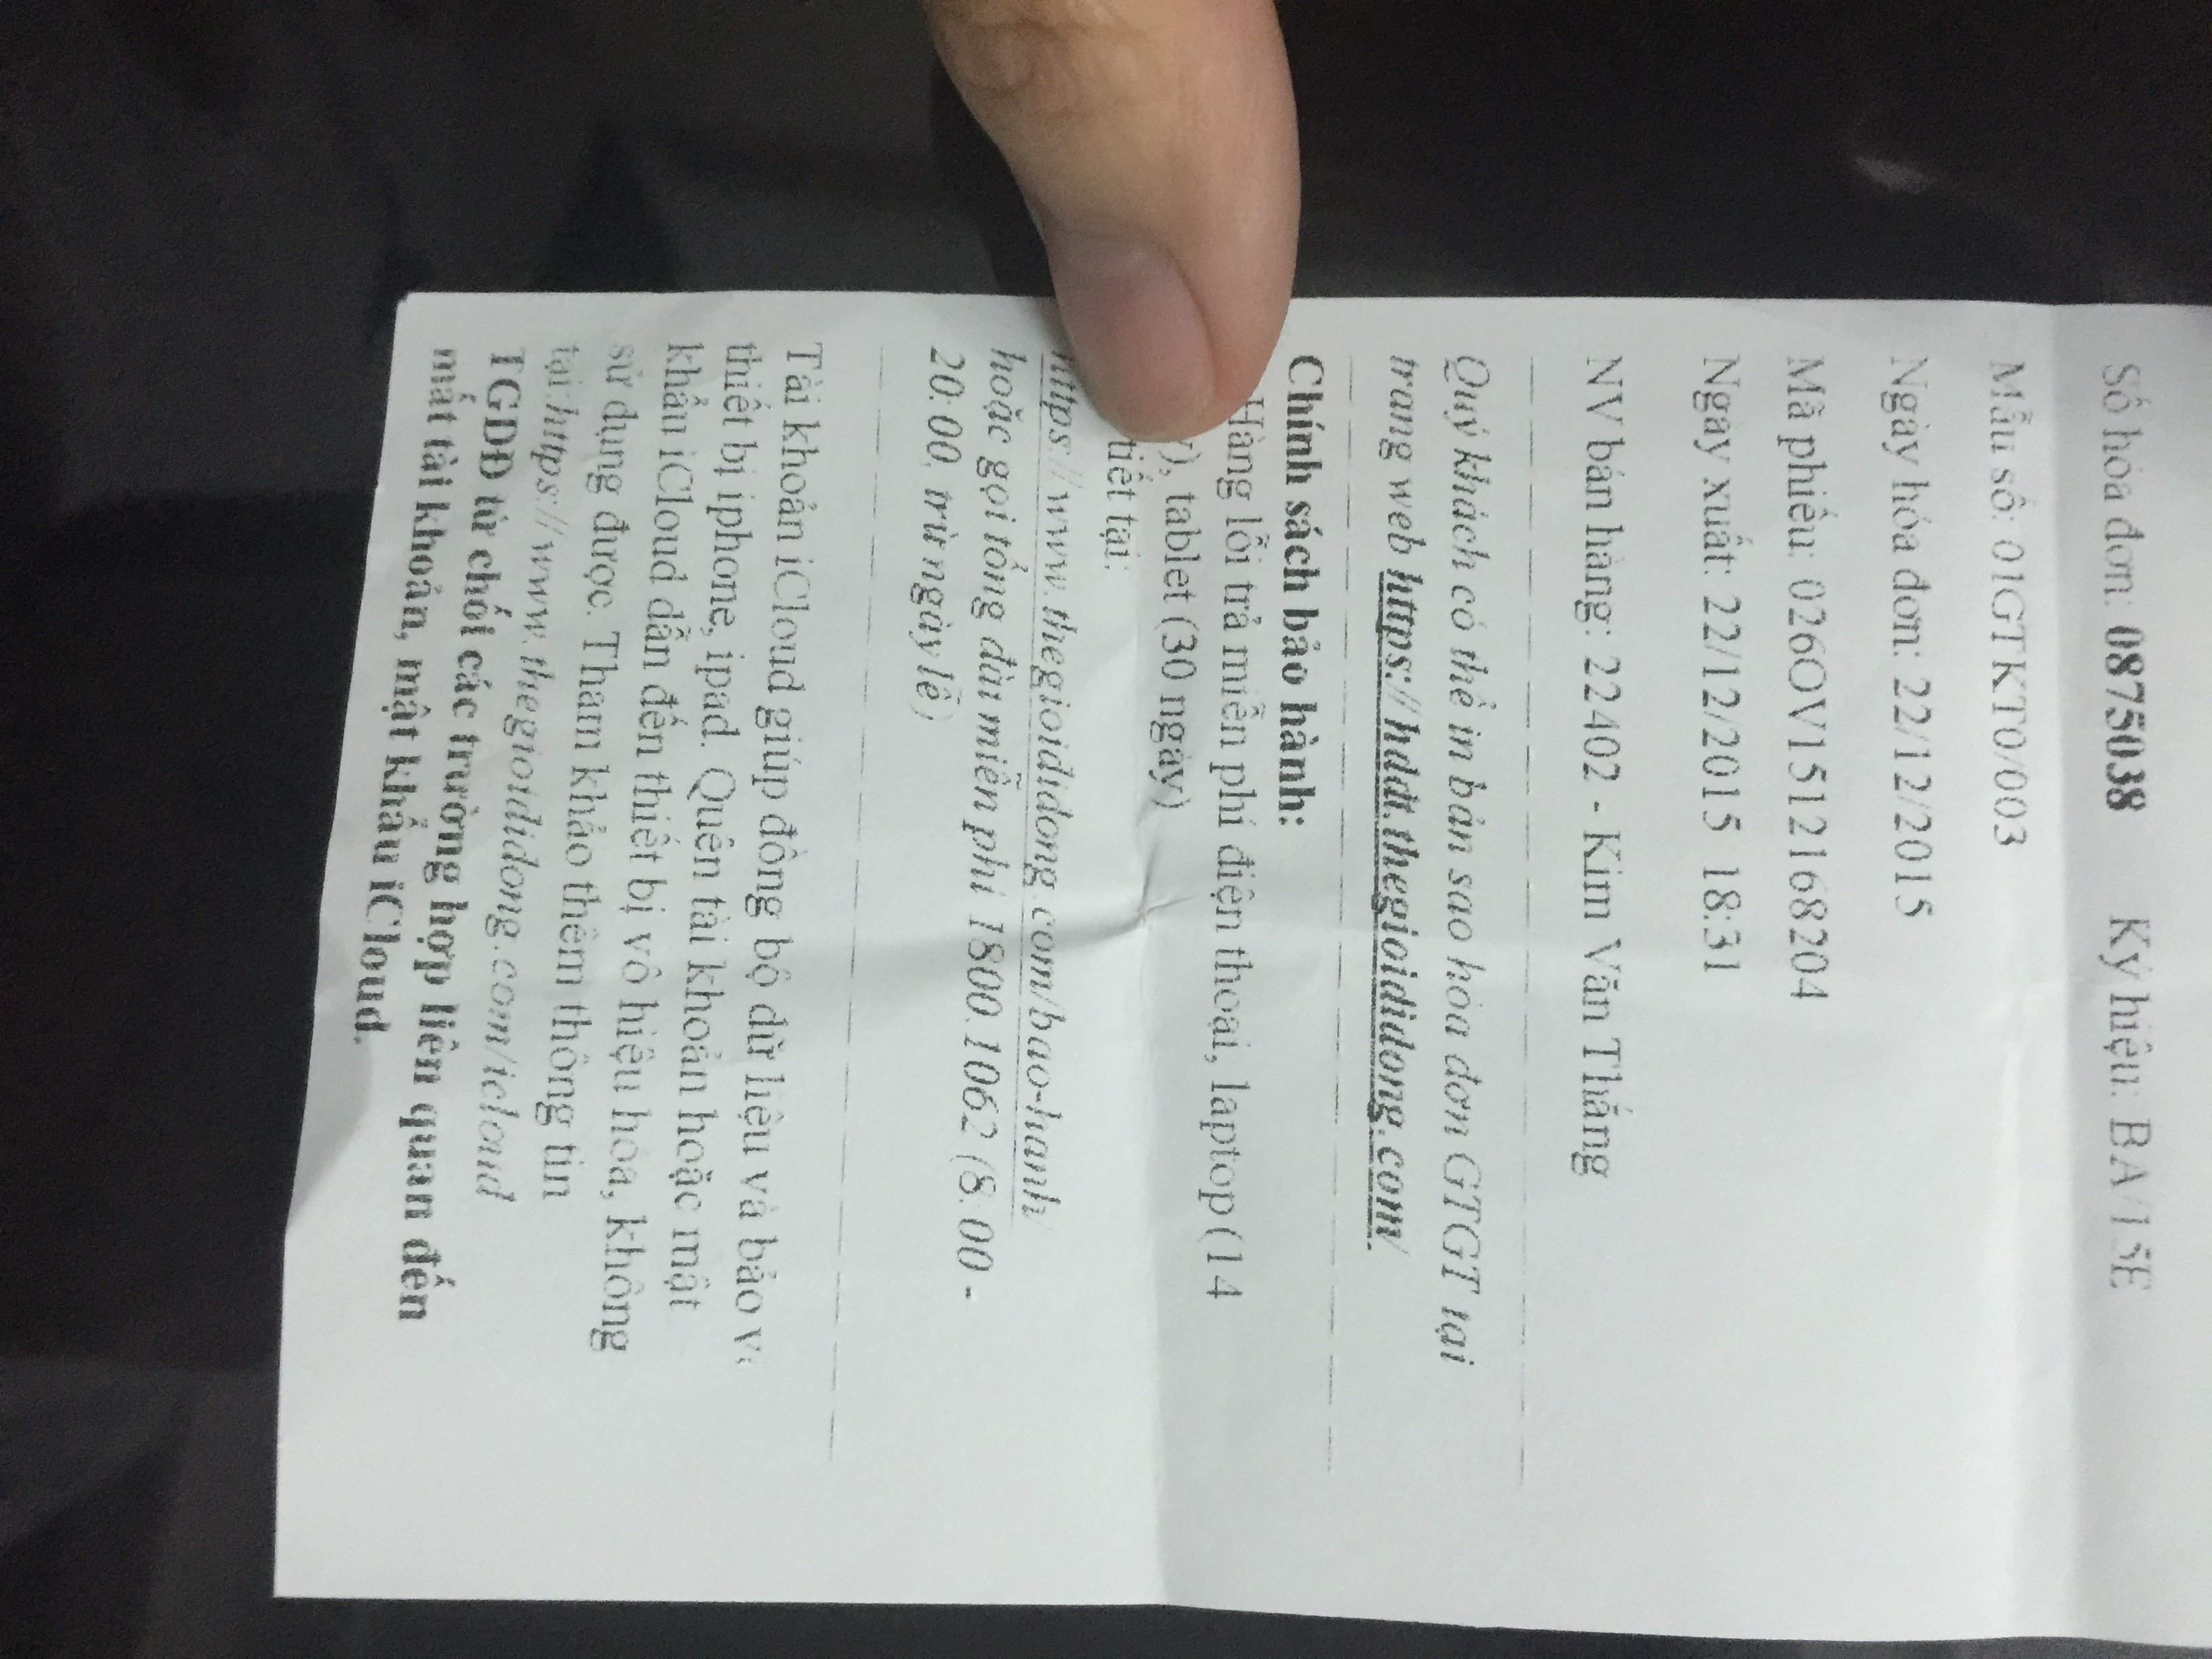 Số hóa đơn: 0875038 Ký hiệu: BA/15E
Mẫu số: 01GTKT0/003
Ngày hóa đơn: 22/12/2015
Mã phiếu: 026OV1512168204
Ngày xuất: 22/12/2015 18:31
NV bán hàng: 22402 - Kim Văn Thắng
Quý khách có thể in bản sao hóa đơn GTGT tại
trang web https://hddt.thegioididong.com/
Chính sách bảo hành:
Hàng lỗi trả miễn phí điện thoại, laptop(14
), tablet (30 ngày)
tiết tại:
https://www.thegioididong.com/bao-hanh
hoặc gọi tổng đài miễn phí 1800.1062 (8:00 -
20:00, trừ ngày lễ)
Tài khoản iCloud giúp đồng bộ dữ liệu và bảo
thiết bị iphone, ipad. Quên tài khoản hoặc mật
khẩu iCloud dẫn đến thiết bị vô hiệu hóa, không
sử dụng được. Tham khảo thêm thông tin
tại:https://www.thegioididong.com/icloud
TGDĐ từ chối các trường hợp liên quan đến
mất tài khoản, mật khẩu iCloud.